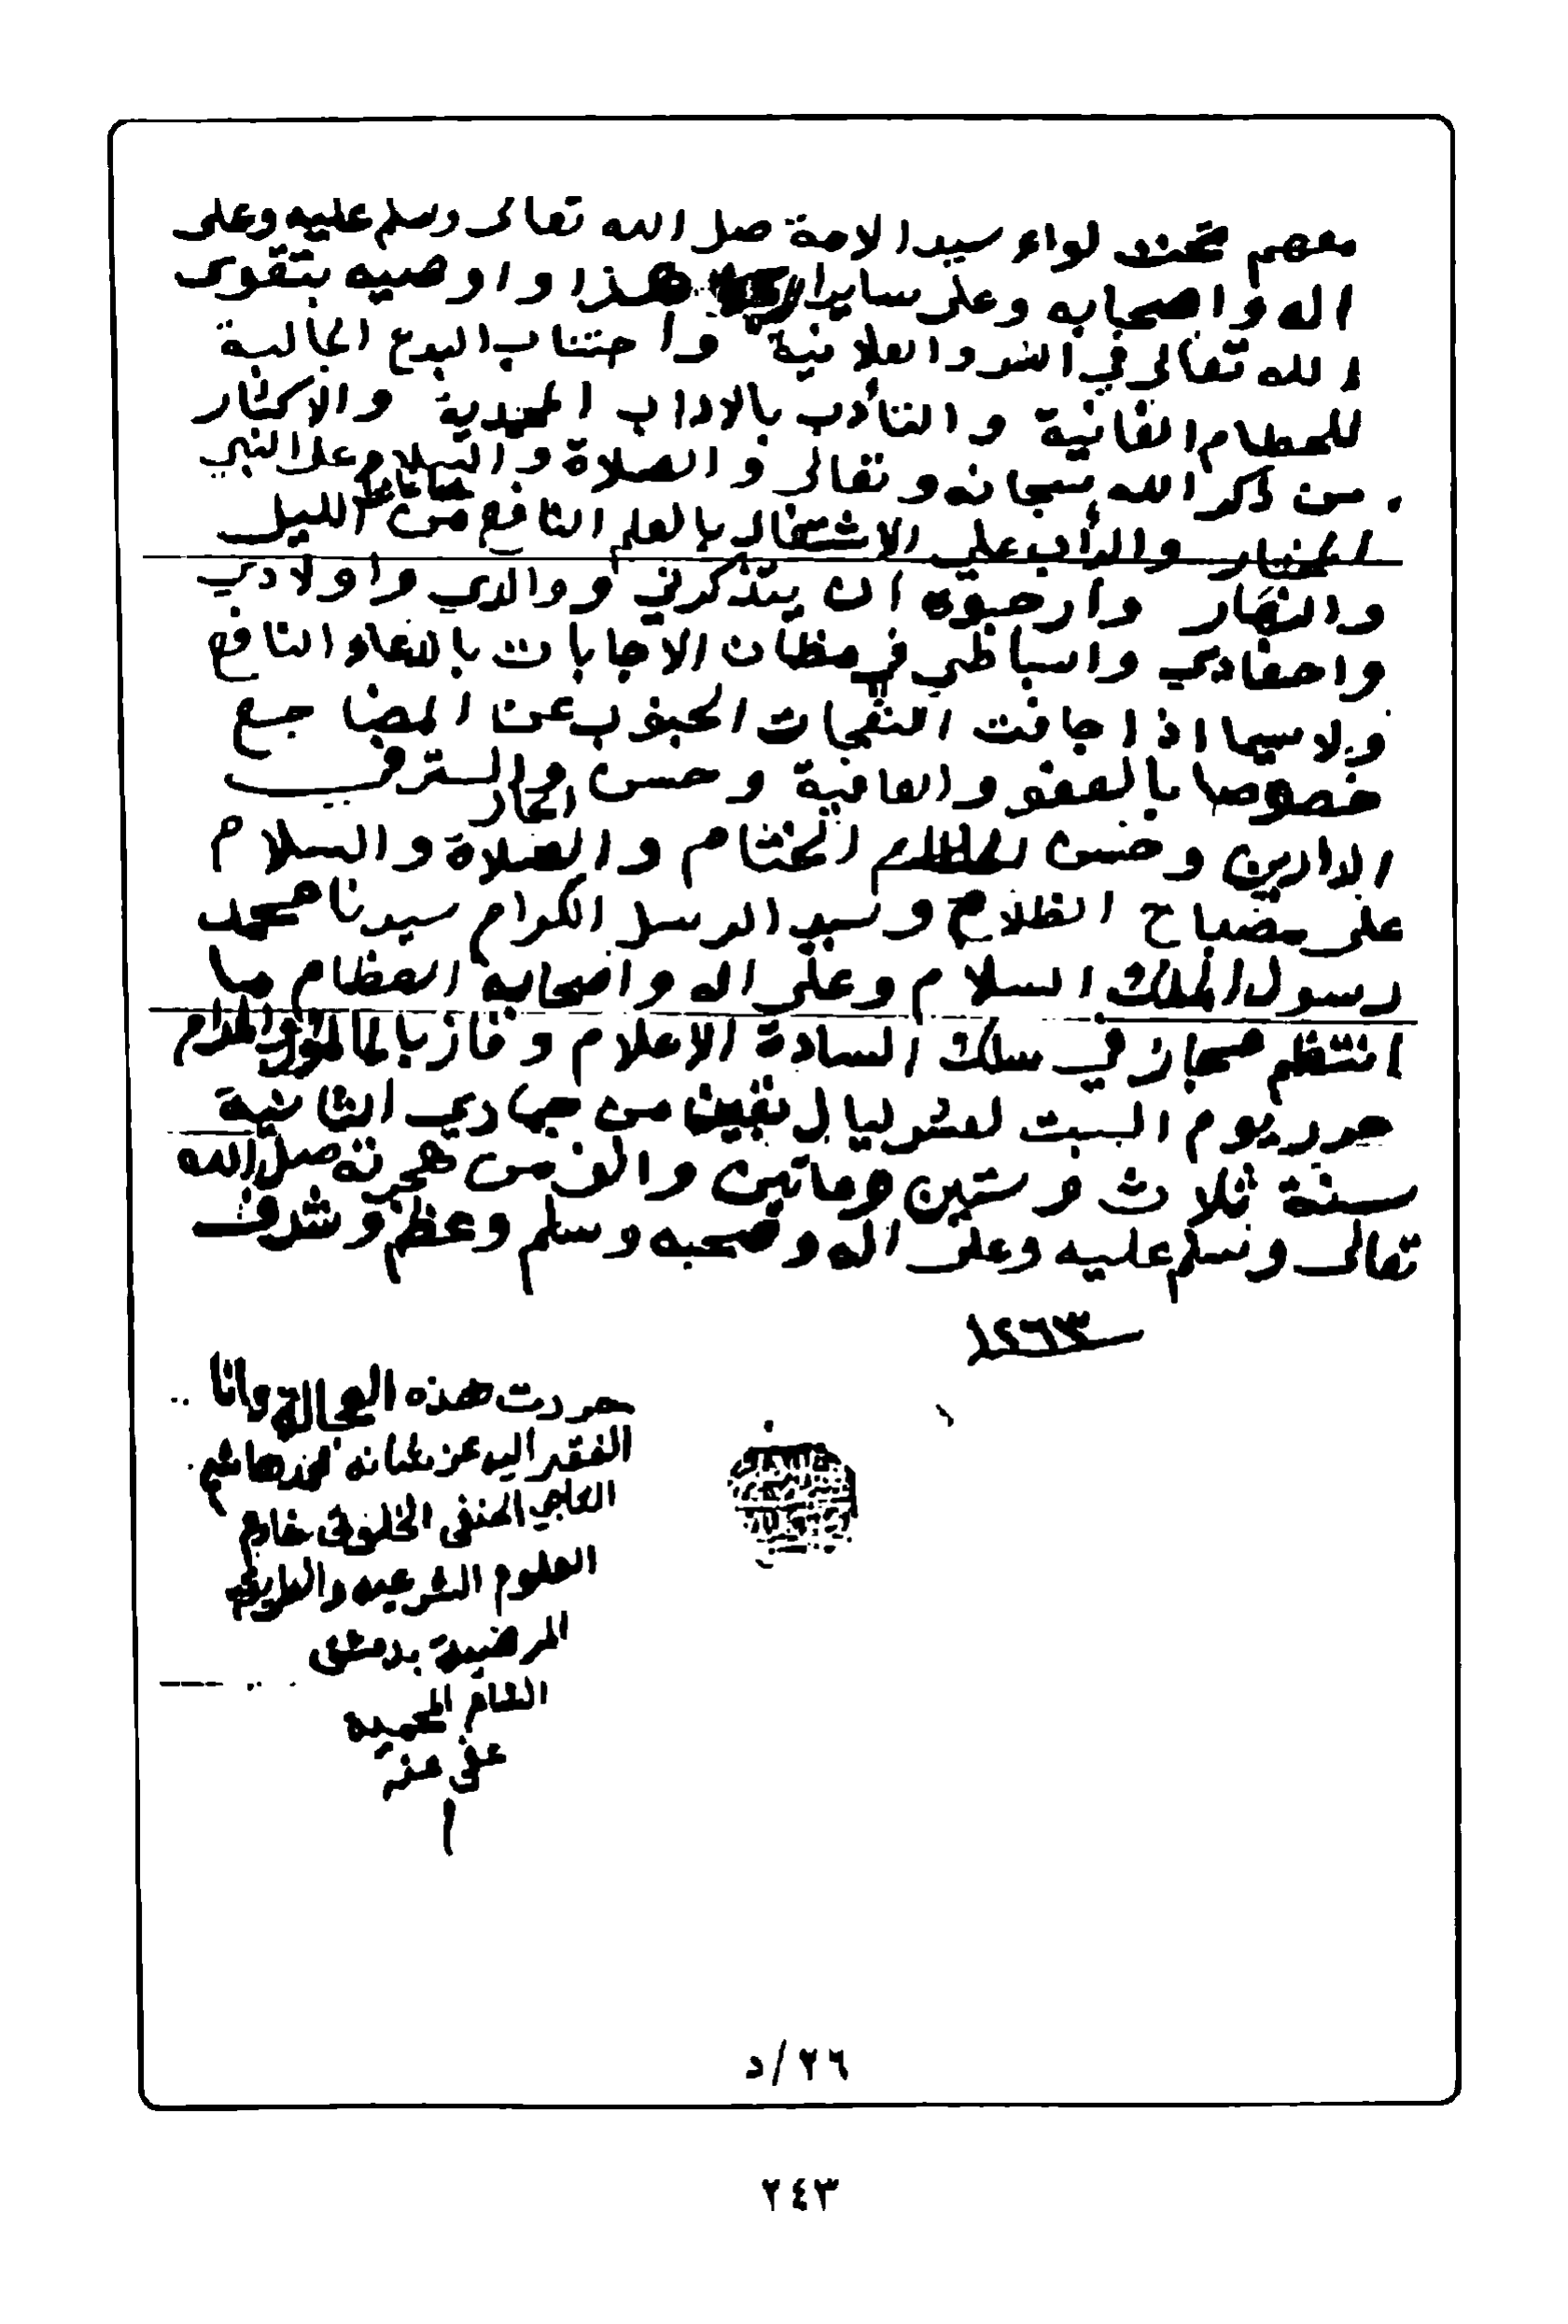 معهم تحت لواء سيد الامة صلى الله تعالى وسلم عليه وعلى
اله واصحابه وعلى ساير هذا واوصيه بتقوى
الله تعالى في السر والعلانية واجتناب البدع الجالبة
للحطام الفانية والتأدب بالاداب المحمدية والاكثار
من ذكر الله سبحانه وتعالى والصلاة والسلام على النبي
المختار والدأب على الاشتغال بالعلم النافع من الليل
والنهار وارجوه ان يتذكرني ووالدي واولادي
واحفادي واسباطي في مظان الاجابات بالدعاء النافع
ولاسيما اذا جافت الجنوب عن المضاجع
خصوصا بالعفو والعافية وحسن والسترفي
الدارين وحسن الختام والصلاة والسلام
على مصباح الظلام وسيد الرسل الكرام سيدنا محمد
رسول الملك السلام وعلى اله واصحابه العظام ما
انتظم مجاز في سلك السادة الاعلام وفاز
حرر يوم السبت لعشر ليال بقين من جمادي الثانية
سنة ثلاث وستين ومأتين والف من هجرته صلى الله
تعالى وسلم عليه وعلى اله وصحبه وسلم وعظم وشرف
١٢٦٣
حررت هذه العجالة وانا
الفقير اليه عز شانه محمد هاشم
التاجي الحنفي الخلوتي خادم
العلوم الشرعيه والطريقه
المرضية بدمشق
الشام المحميه
عفي عنه
٢٦/د
٢٤٣